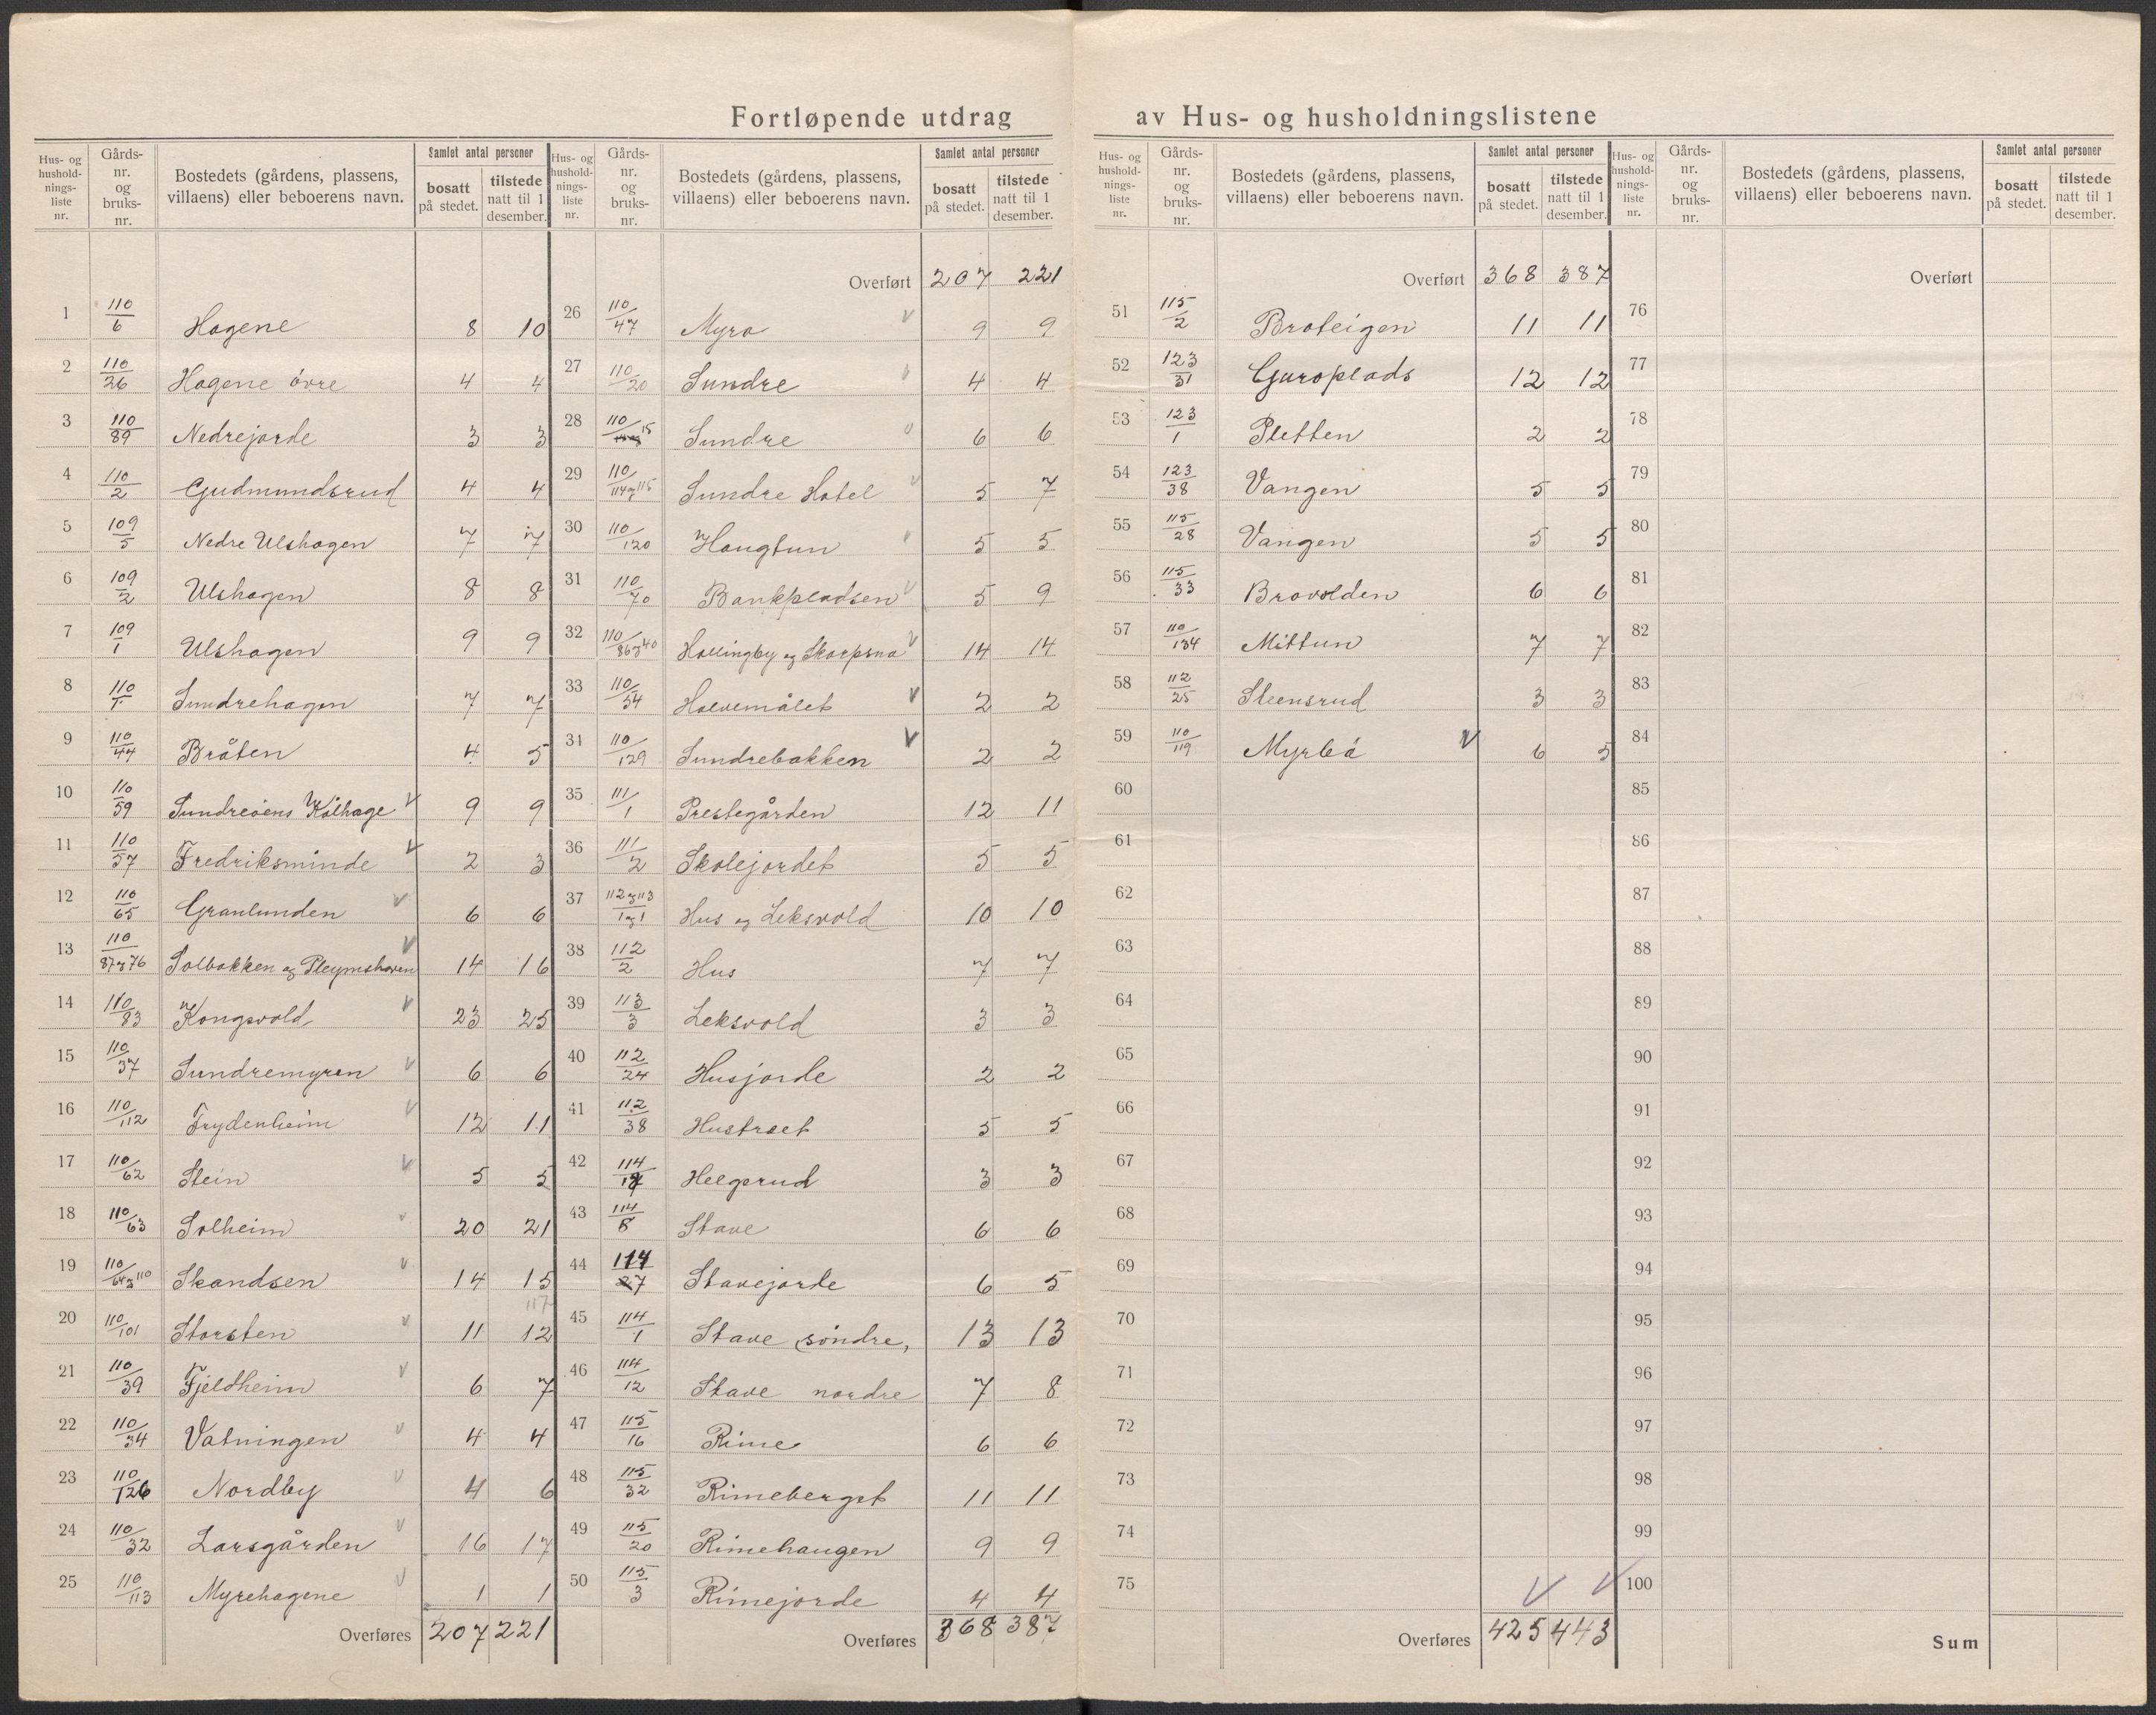 Fortløpende utdrag av Hus- og husholdningslistene
Hus- og hushold-nings-liste nr. | Gårds-nr. og bruks-nr. | Bostedets (gårdens, plassens, villaens) eller beboerens navn. | Samlet antal personer: bosatt på stedet. | tilstede natt til 1 desember.
1 110/6 Hagene 8 10
2 110/26 Hagene övre 4 4
3 110/89 Nedrejorde 3 3
4 110/2 Gudmundsrud 4 4
5 109/5 Nedre Ulshagen 7 7
6 109/2 Ulshagen 8 8
7 109/1 Ulshagen 9 9
8 110/1 Sundrehagen 7 7
9 110/44 Bråten 4 5
10 110/59 Sundreöens Kålhage V 9 9
11 110/57 Fredriksminde V 2 3
12 110/65 Granlunden V 6 6
13 110/87og76 Solbakken og Pleymshaven V 14 16
14 110/83 Kongsvold V 23 25
15 110/37 Sundremyren V 6 6
16 110/112 Frydenheim V 12 11
17 110/62 Stein V 5 5
18 110/63 Solheim V 20 21
19 110/64og110 Skandsen V 14 15
117
20 110/101 Storsten V 11 12
21 110/39 Fjeldheim V 6 7
22 110/34 Vatningen V 4 4
23 110/126 Nordby V 4 6
24 110/32 Larsgården V 16 17
25 110/113 Myrehagene V 1 1
Overføres 207 221
Hus- og hushold-nings-liste nr. | Gårds-nr. og bruks-nr. | Bostedets (gårdens, plassens, villaens) eller beboerens navn. | Samlet antal personer: bosatt på stedet. | tilstede natt til 1 desember.
Overført 207 221
26 110/47 Myra V 9 9
27 110/20 Sundre V 4 4
28 110/15 Sundre V 6 6
29 110/114og115 Sundre Hotel V 5 7
30 110/120 Haugtun V 5 5
31 110/70 Bankpladsen V 5 9
32 110/86og40 Hallingby og Skarpsno V 14 14
33 110/54 Halvemålet V 2 2
34 110/129 Sundrebakken V 2 2
35 111/1 Prestegården 12 11
36 111/2 Skolejordet 5 5
37 112og113/1og1 Hus og Leksvold 10 10
38 112/2 Hus 7 7
39 113/3 Leksvold 3 3
40 112/24 Husjorde 2 2
41 112/38 Hustræet 5 5
42 114/ Helgerud 3 3
43 114/8 Stave 6 6
44 114/27 Stavejorde 6 5
45 114/1 Stave söndre, 13 13
46 114/12 Stave nordre 7 8
47 115/16 Rime 6 6
48 115/32 Rimeberget 11 11
49 115/20 Rimehaugen 9 9
50 115/3 Rimejorde 4 4
Overføres 368 387
Hus- og hushold-nings-liste nr. | Gårds-nr. og bruks-nr. | Bostedets (gårdens, plassens, villaens) eller beboerens navn. | Samlet antal personer: bosatt på stedet. | tilstede natt til 1 desember.
Overført 368 387
51 115/2 Broteigen 11 11
52 123/31 Guroplads 12 12
53 123/1 Pletten 2 2
54 123/38 Vangen 5 5
55 115/28 Vangen 5 5
56 115/33 Brovolden 6 6
57 110/134 Mittun 7 7
58 112/25 Steensrud 3 3
59 110/119 Myrbö V 6 5
60
61
62
63
64
65
66
67
68
69
70
71
72
73
74
75 V V
Overføres 425 443
Hus- og hushold-nings-liste nr. | Gårds-nr. og bruks-nr. | Bostedets (gårdens, plassens, villaens) eller beboerens navn. | Samlet antal personer: bosatt på stedet. | tilstede natt til 1 desember.
Overført
76
77
78
79
80
81
82
83
84
85
86
87
88
89
90
91
92
93
94
95
96
97
98
99
100
Sum